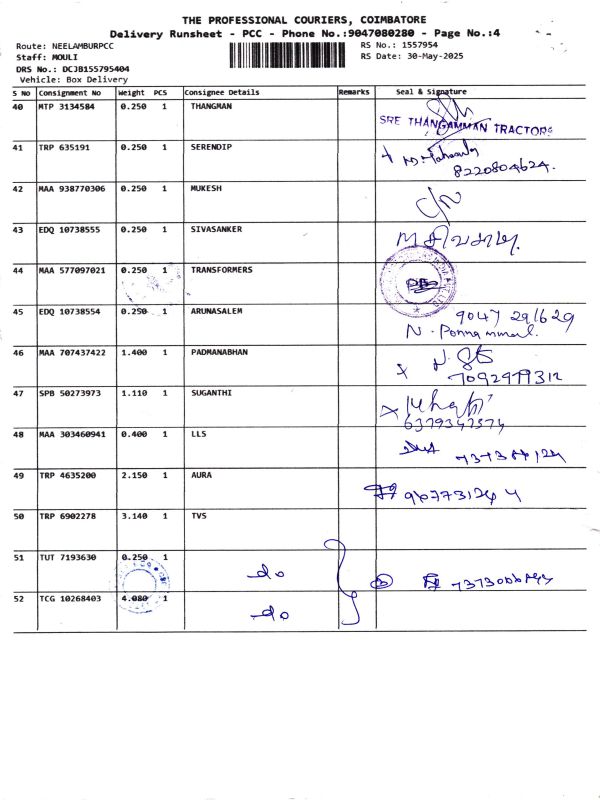 THE PROFESSIONAL COURIERS, COIMBATORE
Delivery Runsheet - PCC - Phone No.:9047080280 - Page No.:4
Route: NEELAMBURPCC
RS No.: 1557954
Staff: MOULI
RS Date: 30-May-2025
DRS No.: DCJB155795404
Vehicle: Box Delivery
S No Consignment No Weight PCS Consignee Details Remarks Seal & Signature
40 MTP 3134584 0.250 1 THANGMAN
SRE THANGAMMAN TRACTORS
41 TRP 635191 0.250 1 SERENDIP
8220804624.
42 MAA 938770306 0.250 1 MUKESH
43 EDQ 10738555 0.250 1 SIVASANKER
44 MAA 577097021 0.250 1 TRANSFORMERS
45 EDQ 10738554 0.250 1 ARUNASALEM
9047 291629
N. Ponnammal.
46 MAA 707437422 1.400 1 PADMANABHAN
7092979312
47 SPB 50273973 1.110 1 SUGANTHI
6379347574
48 MAA 303460941 0.400 1 LLS
49 TRP 4635200 2.150 1 AURA
50 TRP 6902278 3.140 1 TVS
51 TUT 7193630 0.250 1 do
52 TCG 10268403 4.080 1 do